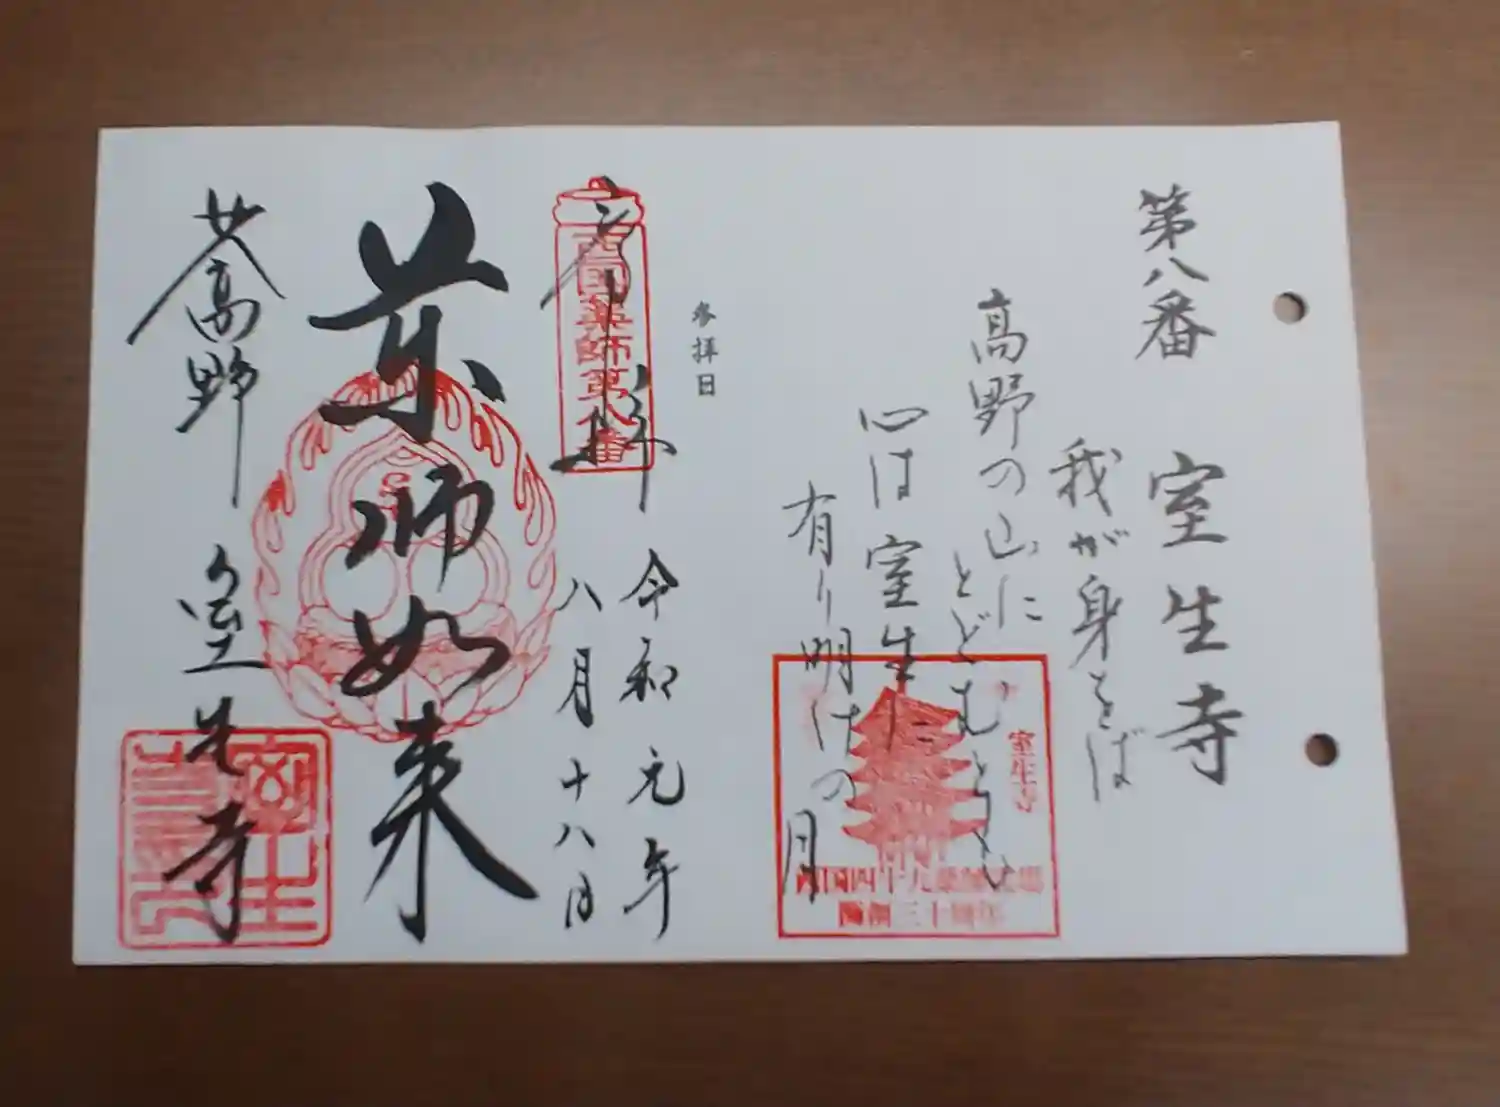 第八番 室生寺
我が身をば
高野の山に
とどむとも
心は室生に
有り明けの月
室生寺
西国四十九薬師霊場
開創三十周年
参拝日
奉拝
西國薬師第八番
令和元年
八月十八日
薬師如来
女高野 室生寺